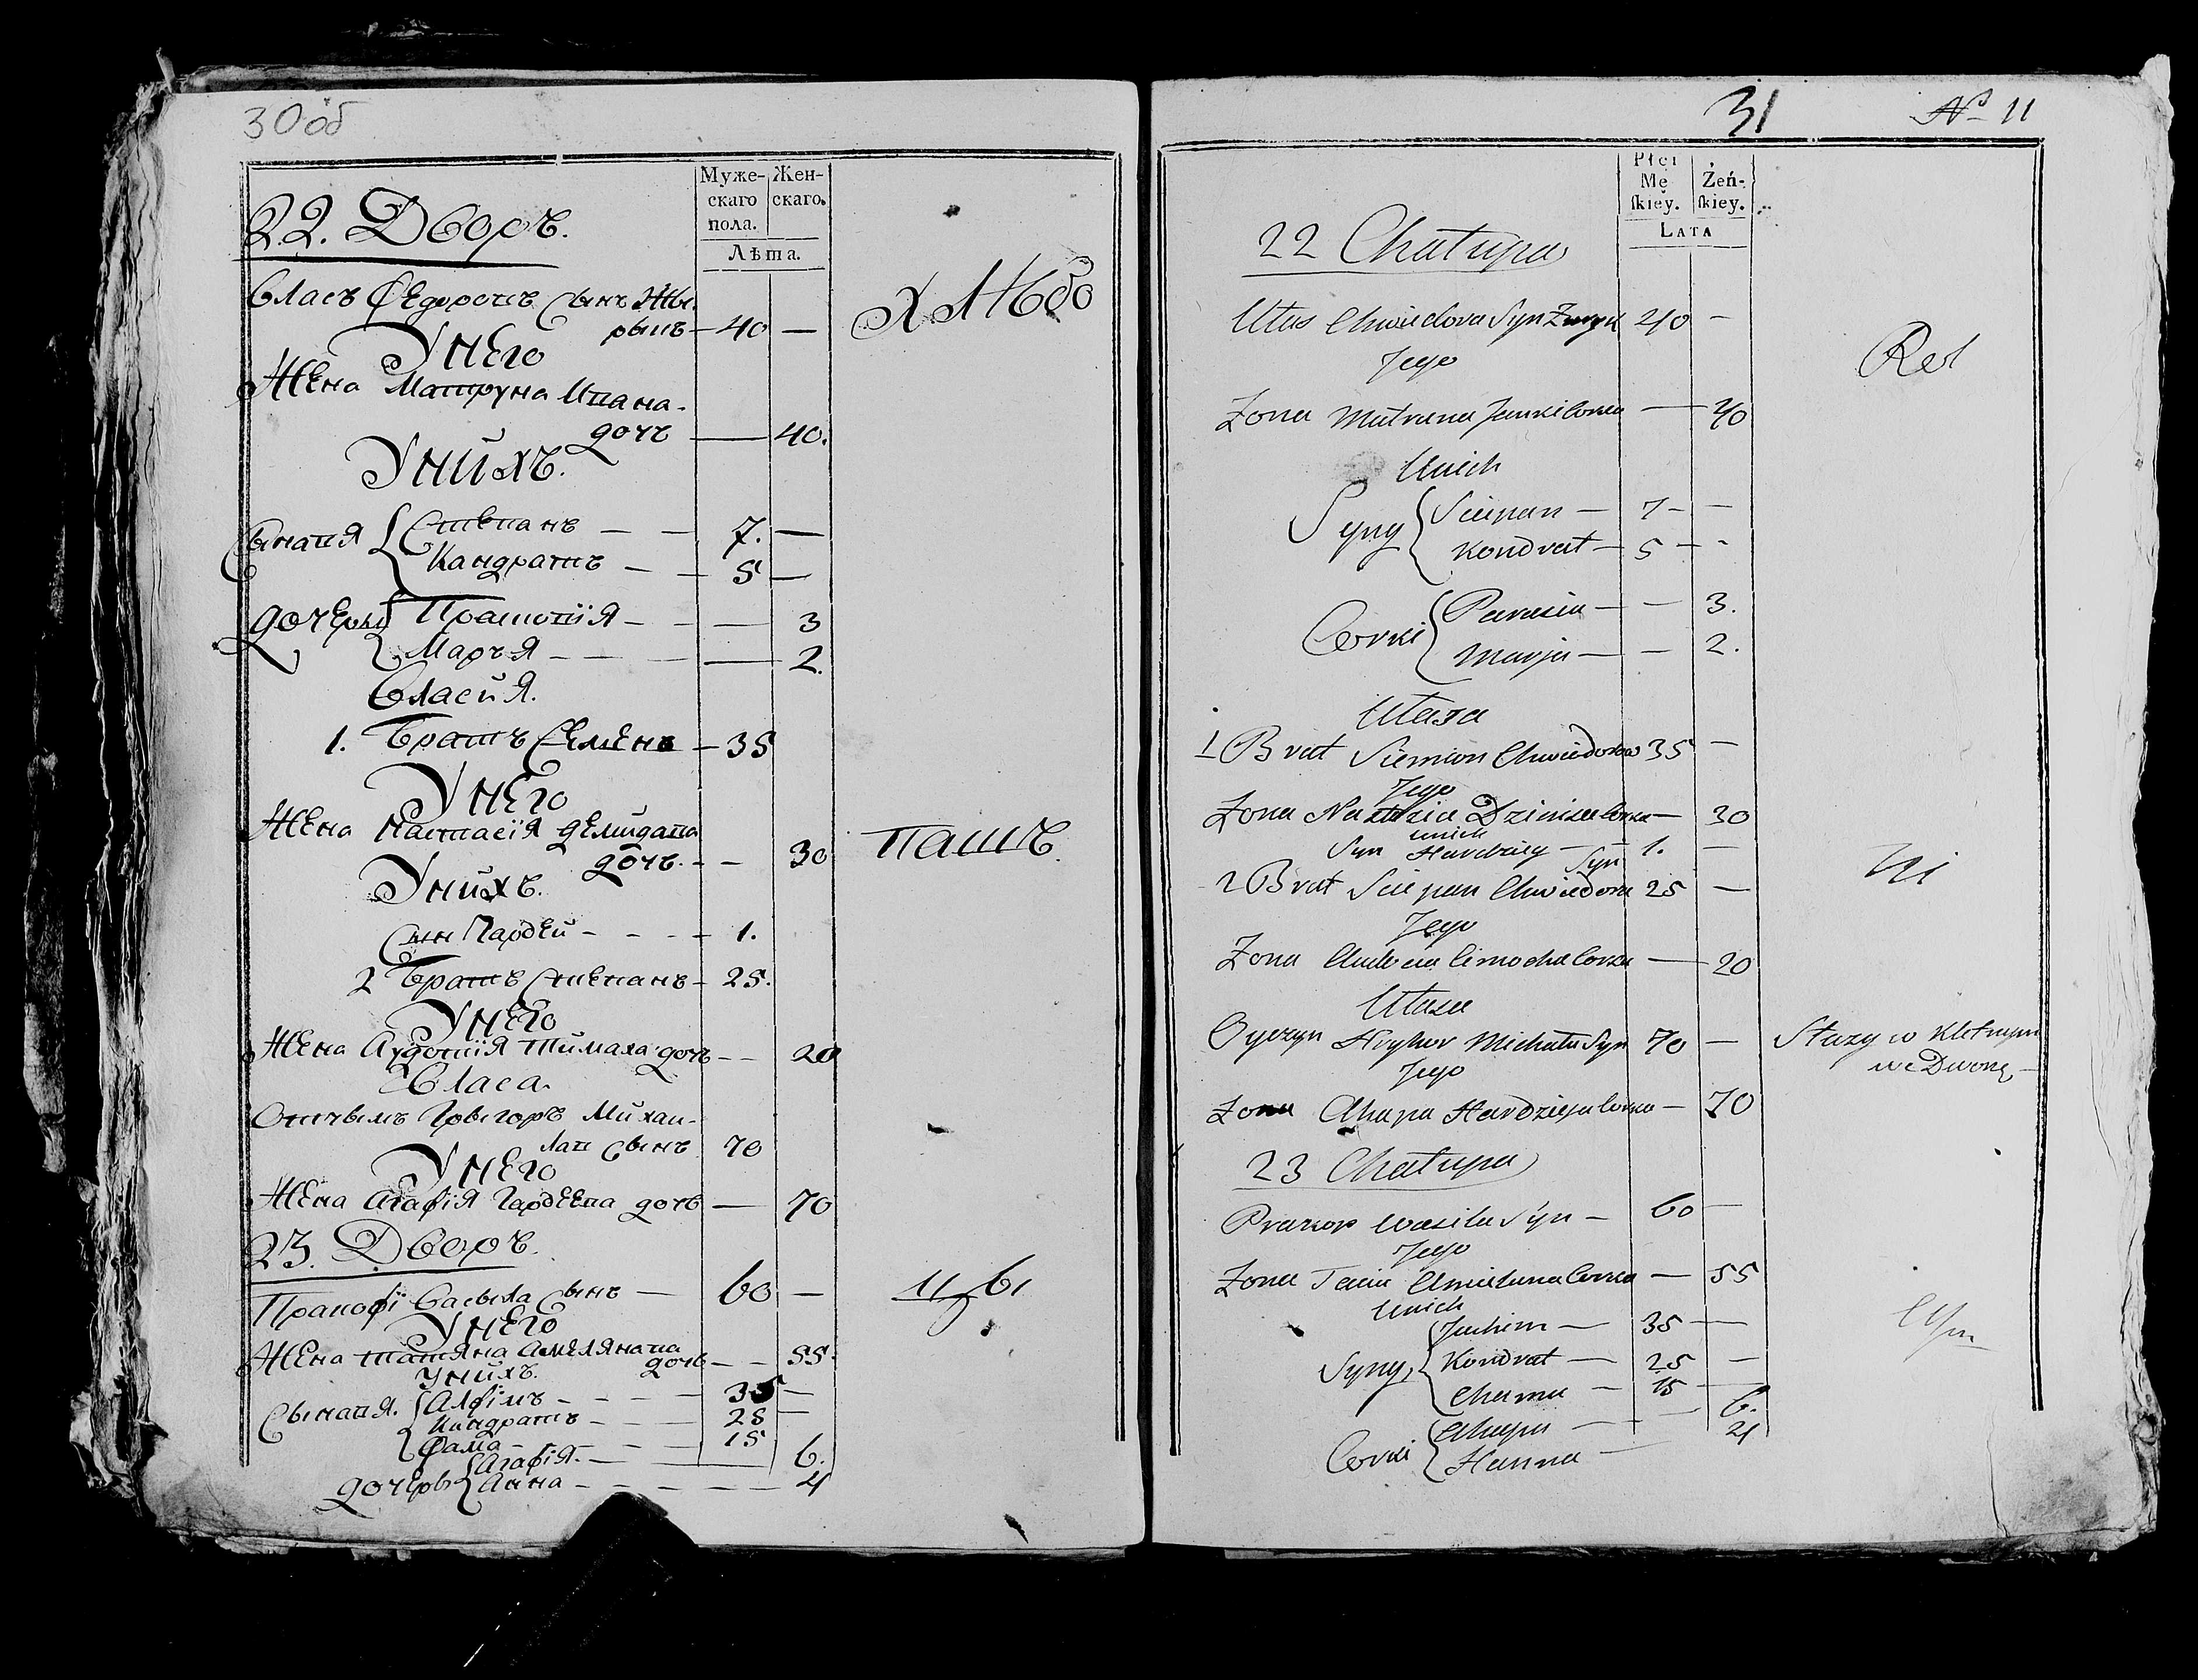 30 об
Муже-
скаго
пола.
Жен-
скаго.
Лѣта.
22. Дворъ.
Власъ Федоровъ Сынъ Жы-
рывъ — 40 —
У него
Жена Матруна Ивана-
дочъ — 40.
У нихъ.
Сынавя Стѣпанъ — — 7. —
Кандратъ — — 5 —
дочеры Прасковія — — 3
Маръя — — 2.
Власия.
1. Братъ Семенъ — 35
У него
Жена Настасія Демидава
дочъ. — — 30
У нихъ.
Сын Гардѣй — — — 1.
2 Братъ Стѣпанъ — 25.
У него
Жена Аудотия Тимаха дочъ — — 20
Власа.
Отчымъ Грыгоръ Михаи-
лав Сынъ 70
У него
Жена Агафія Гардѣева дочъ — 70
23. Дворъ.
Пракофі Васыла Сынъ — 60 —
У него
Жена Татяна Амѣлянава
дочъ — — 55.
У нихъ.
Сынавя. — — — 35 —
Кандратъ — — — 25 —
Фама — — — 15
дочеры Агафія. — 6.
Анна — — — — 4
ХЛѢбо
пашъ
31
№ 11
Płci
Mę
skiey.
Żeń-
skiey.
Lata
22 Chałupa
Ułas Chwiedora Syn 40 —
Jego
Żona Matruna Jankilowa — 40
U nich
Syny Sciepan — 7 — —
Kondrat — 5 — -
Corki Parasia — — 3.
Marja — — 2.
Ułasa
1 Brat Siemion Chwiedorow 35 —
Jego
Żona Nastazia — 30
U nich
Syn Hardziey — — 1. —
Syn
2 Brat Sciepan Chwiedora 25 —
Jego
Żona Cimocha Corka — 20
Ułasa
Oyczym Hryhor Michała Syn 70 —
Jego
Żona Ahapa Hardzieja Corka — 70
23 Chałupa
Prakop Wasila Syn — 60 —
Jego
Żona Corka — 55
U nich
Syny, Jachim — 35 —
Kondrat — 25 —
Chama — 15 —
Corki Ahapa — — 6.
Hanna — 4
Służy w
we Dworze